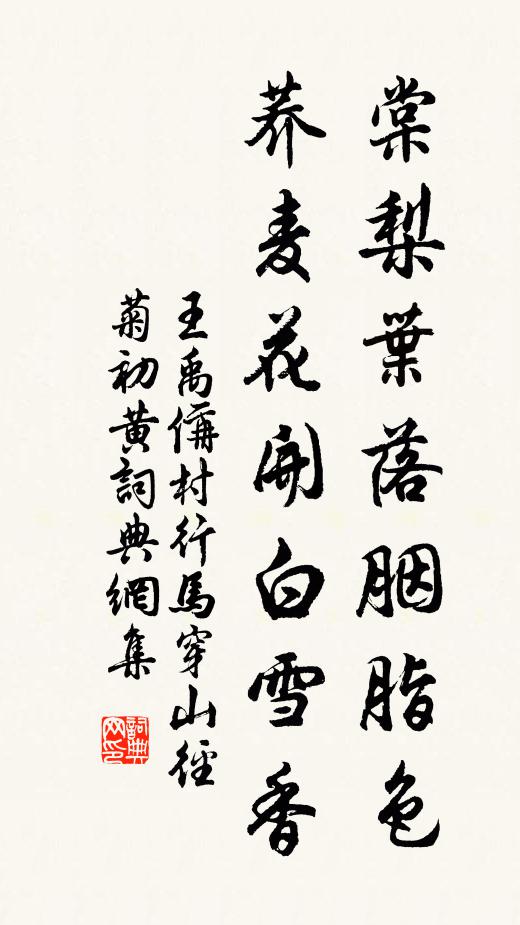 棠梨葉落胭脂色
荞麦花開白雪香
王禹偁村行馬穿山徑
菊初黄詞典網集
詞典網印